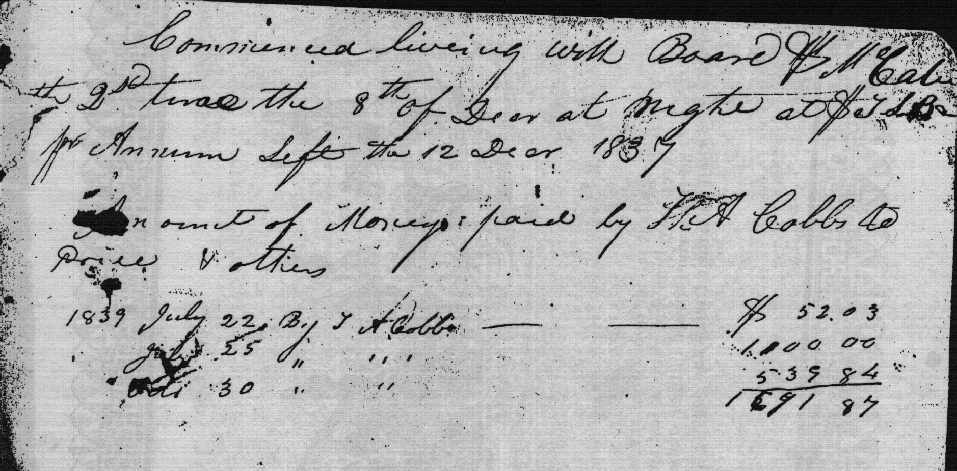 Commenced liveing with Board & McCabe
the 2nd time the 8th of Decr at Nighe at $
pr Annum Left the 12 Decr 1837
Amount of Money paid by T. A Cobbs to
Price & others
1839 July 22 By T A Cobbs — — $ 52.03
" July 25 " " " 1,100 00
" 30 " " 539 84
1691 87